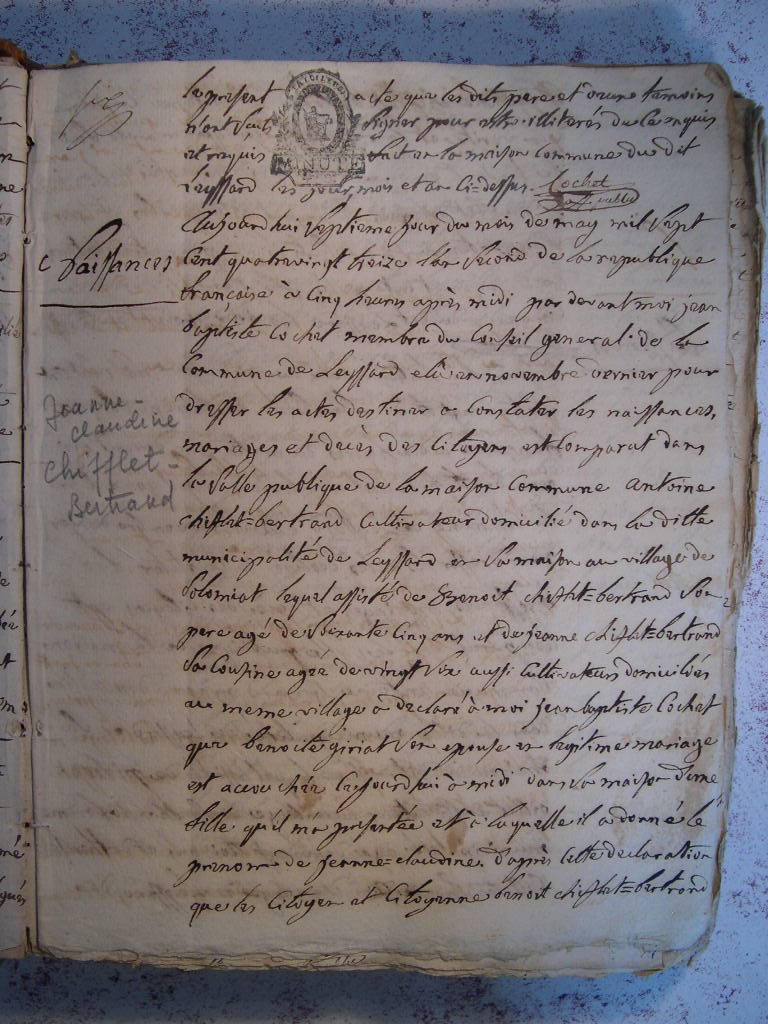 le present acte que les dits pere et temoins
n'ont sçus signer pour etre illiterés de ce enquis
et requis fait en la maison commune du dit
Leyssard les jour mois et an ci=dessus Cochet
MINUTE
Naissances
Aujourd hui septieme jour du mois de may mil sept
cent quatrevingt treize l'an second de la republique
francaise à cinq heures après midi par devant moi jean
baptiste Cochet membre du Conseil general de la
Commune de Leyssard elu en novembre dernier pour
dresser les actes destinés a constater les naissances,
mariages et decès des citoyens est comparut dans
la salle publique de la maison commune antoine
chifflet=bertrand cultivateur domicilié dans la ditte
municipalité de Leyssard en sa maison au village de
Solomiat lequel assisté de Benoit chifflet=bertrand son
pere agé de soixante cinq ans et de jeanne chifflet=bertrand
sa cousine agée de vingt six aussi cultivateurs domiciliés
au meme village a declaré à moi jean baptiste Cochet
que benoite giriat son epouse en legitime mariage
est accouchée cejourdhui à midi dans sa maison d'une
fille qu'il m'a presentée et a laquelle il a donné le
prenom de jeanne=claudine. d'après cette declaration
que les citoyen et citoyenne benoit chifflet=bertrand
Jeanne-
claudine
Chifflet-
Bertrand